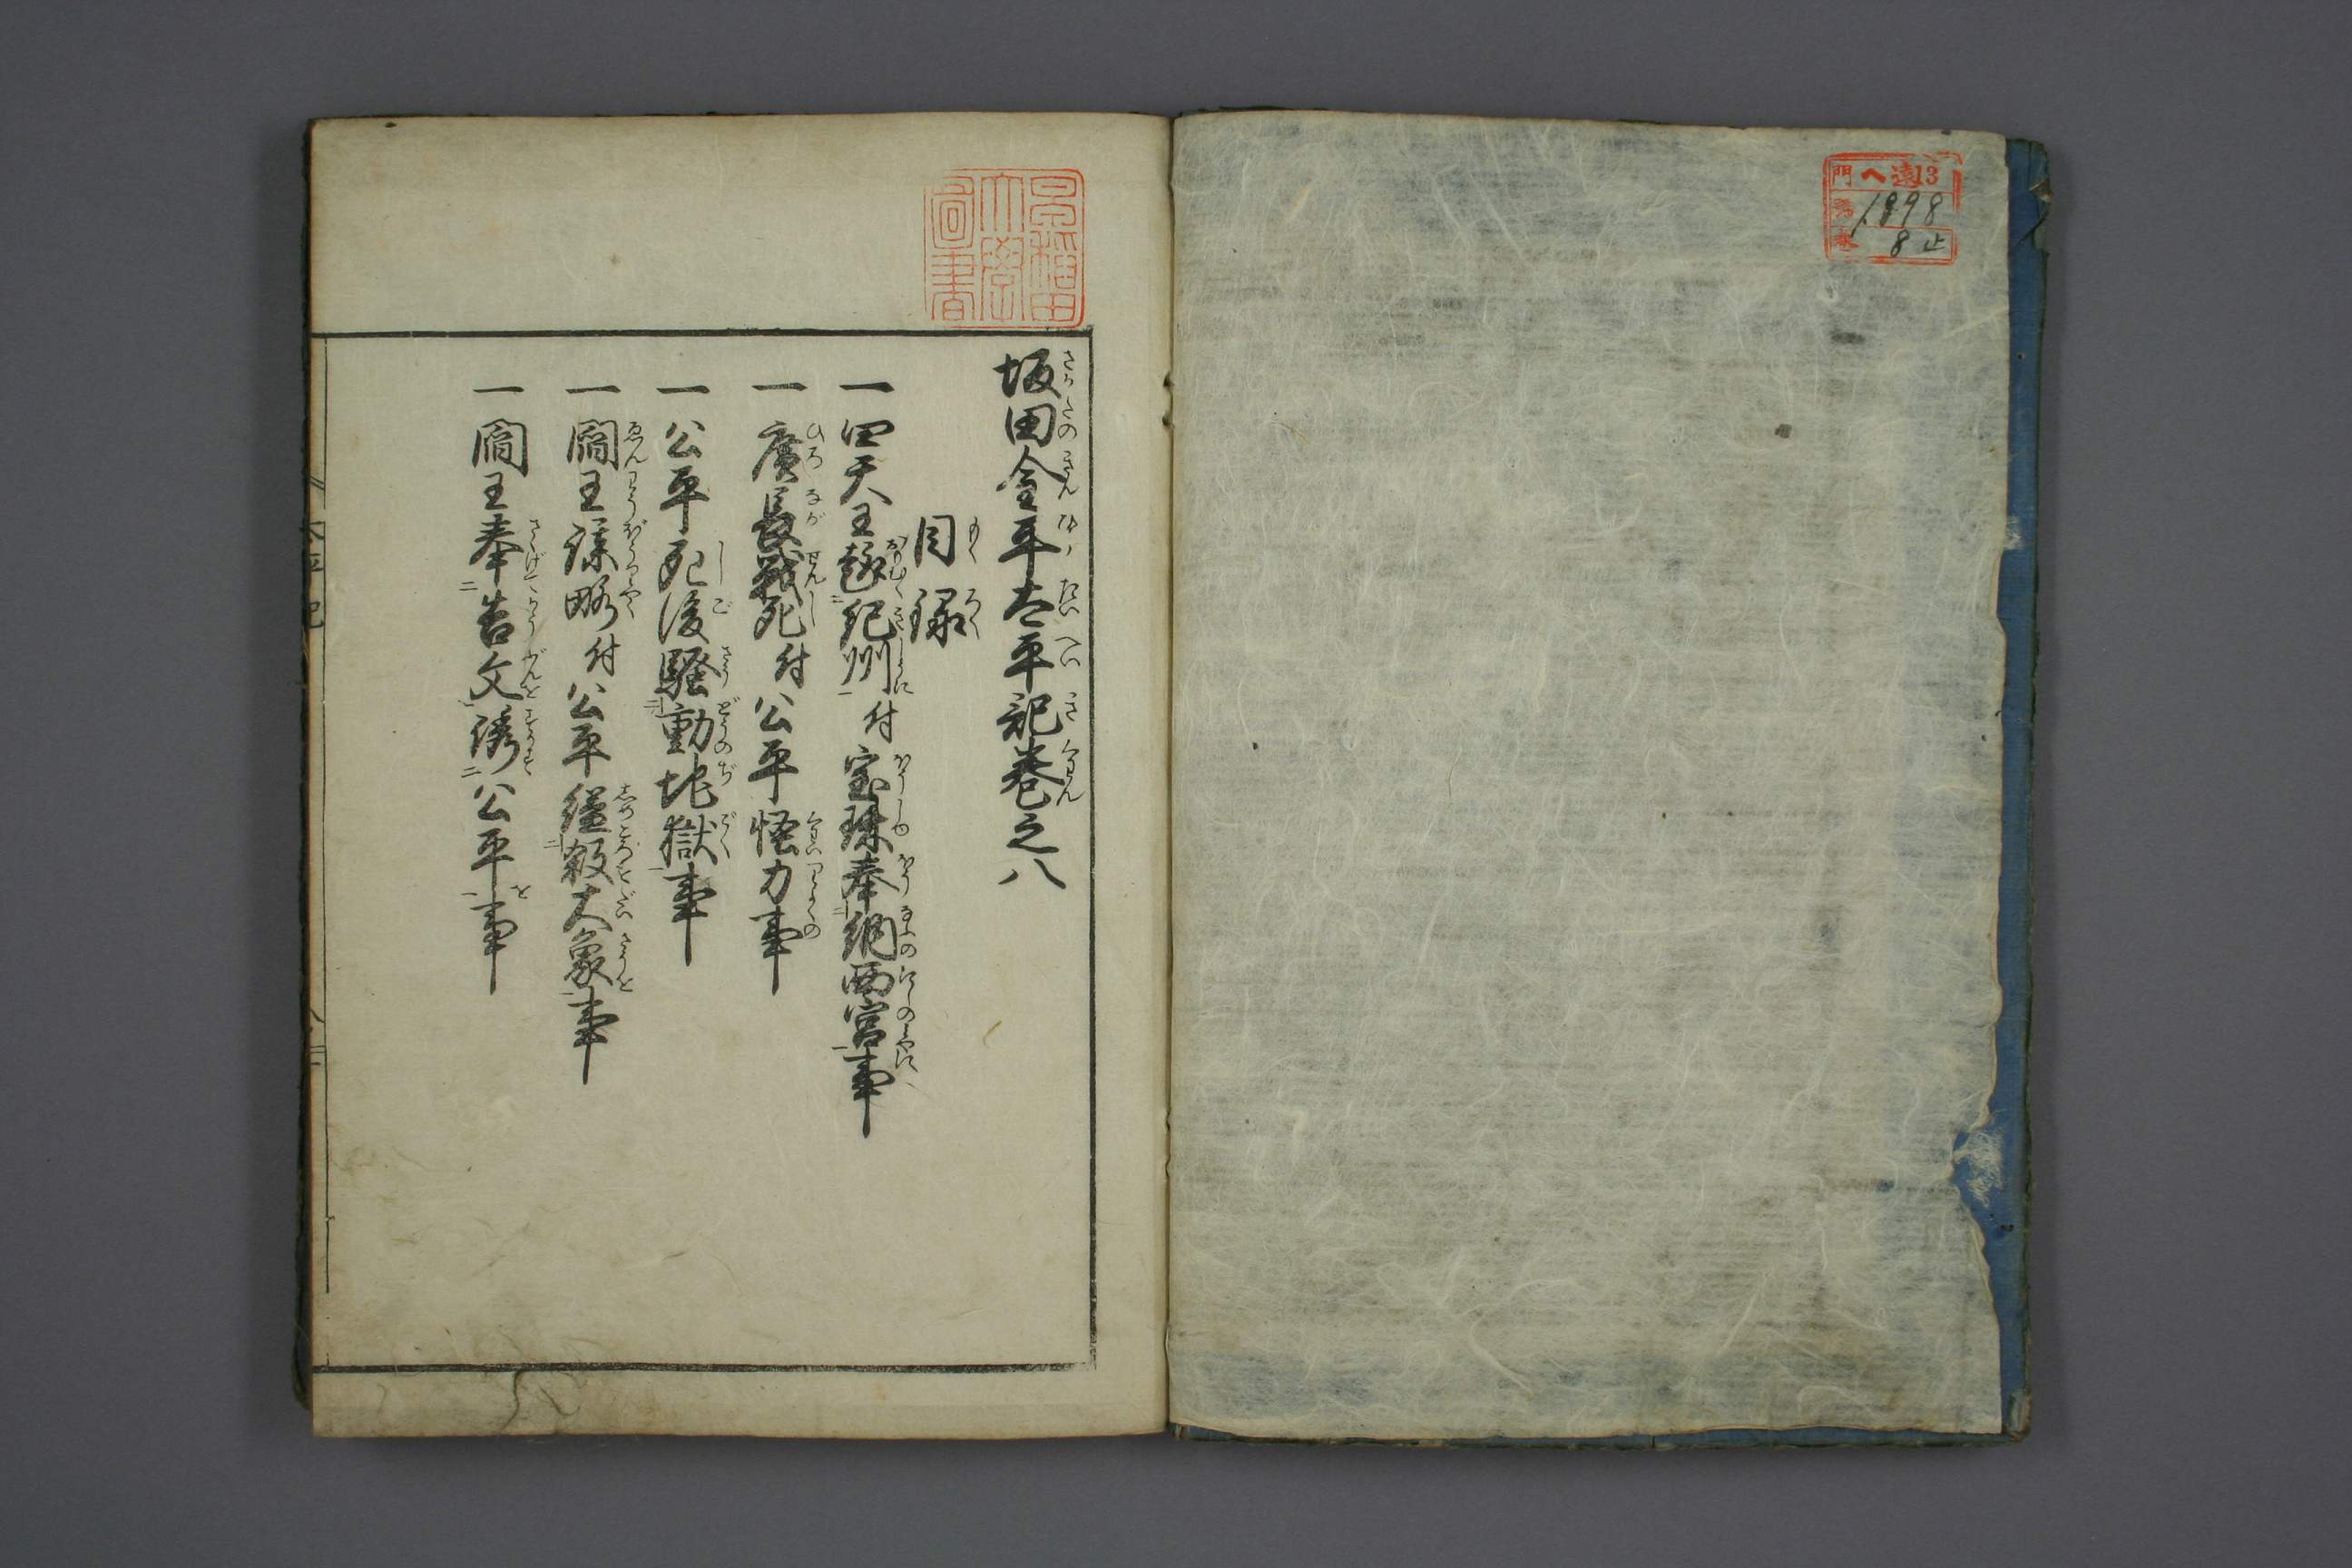 門 ヘ遠13
号 1898
巻 8止
早稲田
大學
圖書
坂田金平太平記巻之八
目録
一 四天王趣紀州付宝珠奉納西宮事
一 廣長戦死付公平怪力事
一 公平死後騒動地獄事
一 閻王謀略付公平縊殺大象事
一 閻王奉告文誘公平事